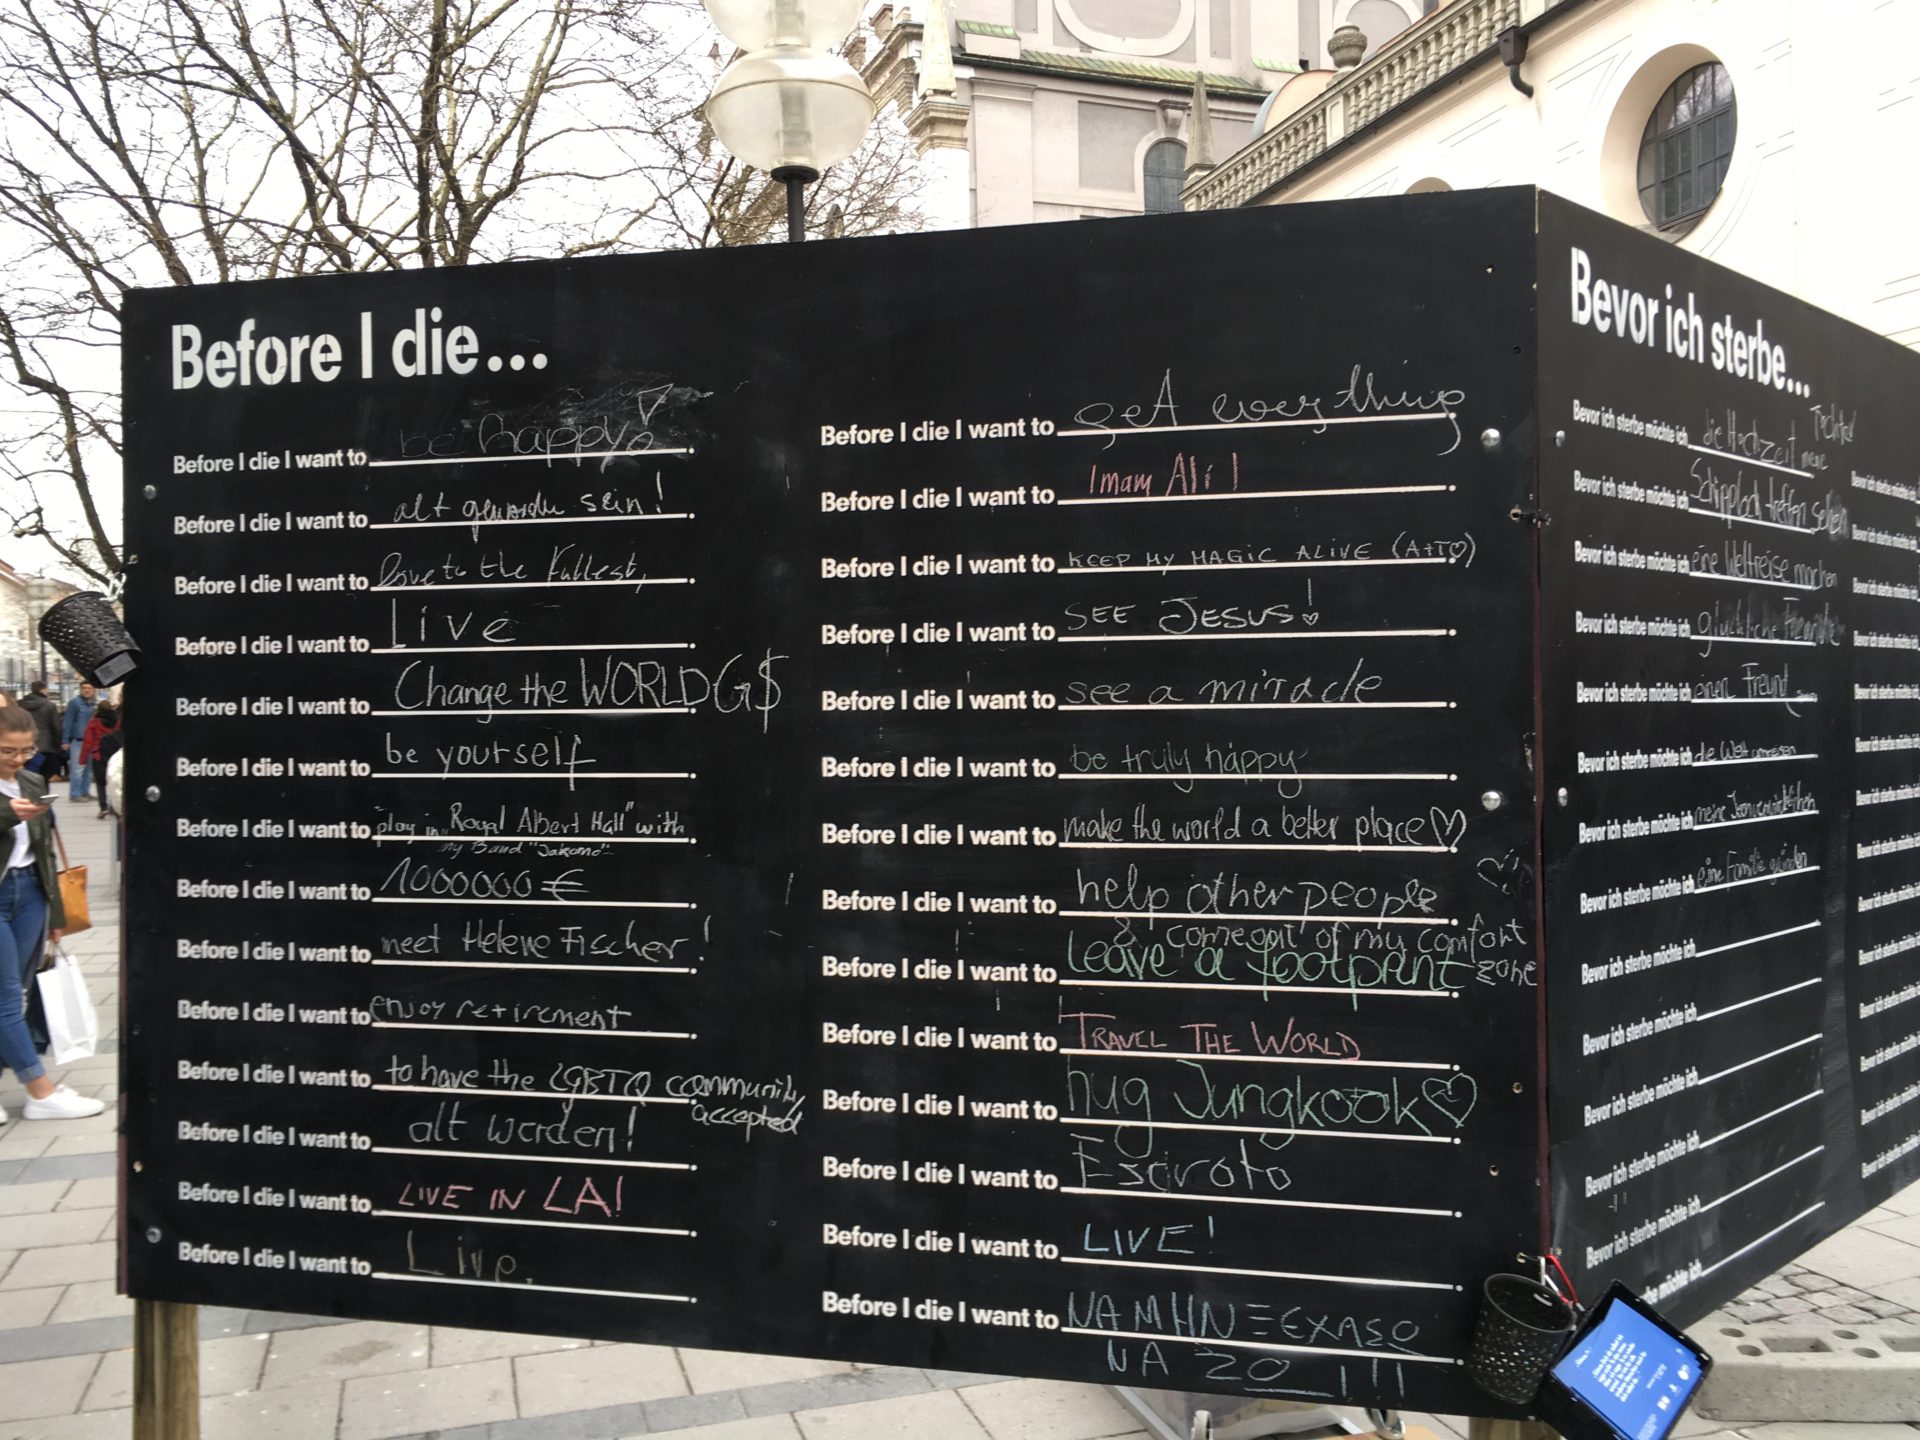 Before I die...
Before I die I want to be happy
Before I die I want to alt geworden sein!
Before I die I want to love to the fullest,
Before I die I want to Live
Before I die I want to Change the WORLD G$
Before I die I want to be yourself
Before I die I want to play in "Royal Albert Hall" with
my Band "Jakomo"
Before I die I want to 1000000 €
Before I die I want to meet Helene Fischer!
Before I die I want to enjoy retirement
Before I die I want to to have the LGBTQ community
accepted
Before I die I want to alt werden!
Before I die I want to LIVE IN LA!
Before I die I want to Live.
Before I die I want to get everything
Before I die I want to Imam Ali!
Before I die I want to KEEP MY MAGIC ALIVE (A+T♡)
Before I die I want to SEE JESUS!
Before I die I want to see a miracle
Before I die I want to be truly happy
Before I die I want to make the world a better place ♡
Before I die I want to help other people
& come out of my comfort zone
Before I die I want to Leave a footprint
Before I die I want to TRAVEL THE WORLD
Before I die I want to hug Jungkook ♡
Before I die I want to
Before I die I want to LIVE!
Before I die I want to ΝΑ ΜΗΝ ΞΕΧΑΣΩ
ΝΑ ΖΩ!!!
Bevor ich sterbe...
Bevor ich sterbe möchte ich die Hochzeit meine Tochter
Bevor ich sterbe möchte ich treffen
Bevor ich sterbe möchte ich eine Weltreise machen
Bevor ich sterbe möchte ich glückliche
Bevor ich sterbe möchte ich einen Freund
Bevor ich sterbe möchte ich die Welt
Bevor ich sterbe möchte ich meine
Bevor ich sterbe möchte ich eine Familie gründen
Bevor ich sterbe möchte ich
Bevor ich sterbe möchte ich
Bevor ich sterbe möchte ich
Bevor ich sterbe möchte ich
Bevor ich sterbe möchte ich
sterbe möchte ich